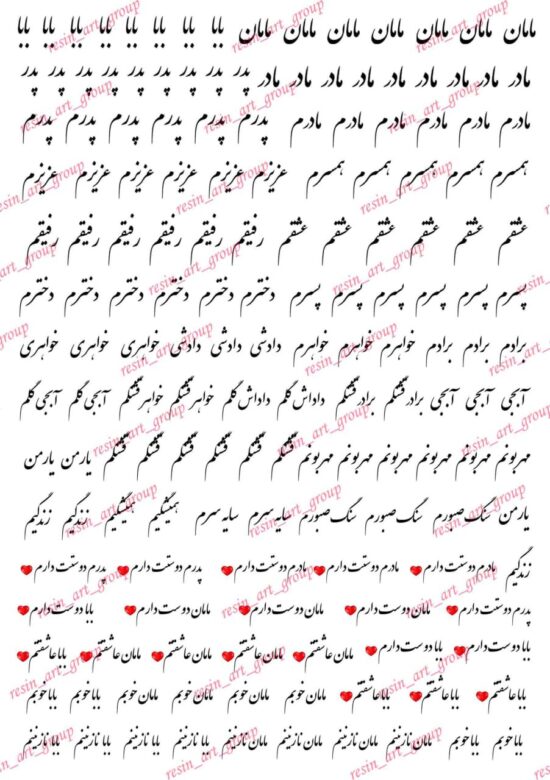 مامان مامان مامان مامان مامان مامان مامان بابا بابا بابا بابا بابا بابا بابا بابا
مادر مادر مادر مادر مادر مادر مادر مادر مادر پدر پدر پدر پدر پدر پدر پدر پدر پدر
مادرم مادرم مادرم مادرم مادرم مادرم پدرم پدرم پدرم پدرم پدرم پدرم
همسرم همسرم همسرم همسرم همسرم عزیزم عزیزم عزیزم عزیزم عزیزم عزیزم
عشقم عشقم عشقم عشقم عشقم عشقم رفیقم رفیقم رفیقم رفیقم رفیقم رفیقم
پسرم پسرم پسرم پسرم پسرم پسرم دخترم دخترم دخترم دخترم دخترم دخترم
برادم برادم خواهرم خواهرم خواهرم دادشی دادشی دادشی خواهری خواهری خواهری
آبجی آبجی آبجی برادر قشنگم برادر قشنگم داداش گلم داداش گلم خواهر قشنگم خواهر قشنگم آبجی گلم آبجی گلم
مهربونم مهربونم مهربونم مهربونم مهربونم مهربونم قشنگم قشنگم قشنگم قشنگم قشنگم یار من یار من
یار من سنگ صبورم سنگ صبورم سنگ صبورم سایه سرم سایه سرم همیشگیم همیشگیم زندگیم زندگیم
زندگیم مادرم دوستت دارم مادرم دوستت دارم مادرم دوستت دارم پدرم دوستت دارم پدرم دوستت دارم
پدرم دوستت دارم مامان دوست دارم مامان دوست دارم مامان دوست دارم بابا دوست دارم
بابا دوست دارم بابا دوست دارم مامان عاشقتم مامان عاشقتم مامان عاشقتم مامان عاشقتم بابا عاشقتم
بابا عاشقتم بابا عاشقتم بابا عاشقتم مامان خوبم مامان خوبم مامان خوبم مامان خوبم بابا خوبم بابا خوبم
بابا خوبم بابا خوبم مامان نازنینم مامان نازنینم مامان نازنینم مامان نازنینم بابا نازنینم بابا نازنینم بابا نازنینم بابا نازنینم
resin_art_group